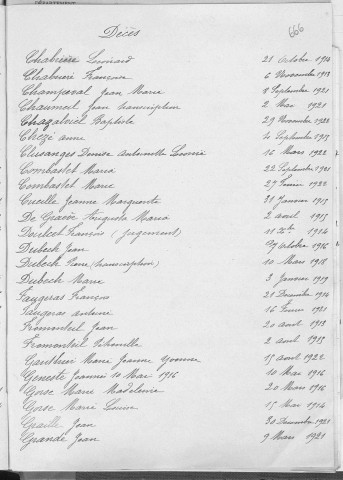 DÉPARTEMENT
Décès
666
Chabrerie Léonard 21 Octobre 1913
Chabrerie Françoise 6 Novembre 1918
Champeval Jean Marie 8 Septembre 1921
Chaumeil Jean transcription 2 Mai 1921
Chazalviel Baptiste 29 Novembre 1922
Chèze Anne 20 Septembre 1915
Clusanges Denise Antoinette 16 Mars 1922
Combastet Maria 22 Septembre 1921
Combastet Marie 27 1922
Cueille Jeanne Marguerite 31 Janvier 1915
De Maria 2 août 1915
François (Jugement) 1914
Dubech Jean Octobre 1916
Dubech (transcription) 10 Mars 1918
Dubech Marie 3 Janvier 1919
Faugeras François 21 Décembre 1914
Faugeras Antoine 16 1921
Fromonteil Jean 20 août 1918
Fromonteil 2 août 1915
Gauthier Marie Jeanne Yvonne 15 août 1922
Geneste Jeanne 10 Mai 1916 10 Mai 1916
Gorse Marie Madeleine 20 Mars 1916
Gorse Marie Louise 15 Mai 1914
Graille Jean 30 Décembre 1921
Grande Jean 9 Mars 1921